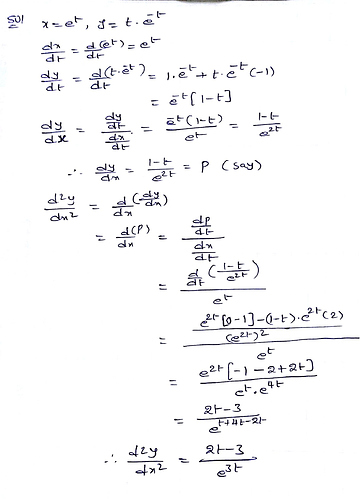 Sol x = e^t, y = t·e^-t
dx/dt = d(e^t)/dt = e^t
dy/dt = d(t·e^-t)/dt = 1·e^-t + t·e^-t (-1)
= e^-t [1-t]
dy/dx = (dy/dt)/(dx/dt) = e^-t(1-t)/e^t = (1-t)/e^2t
∴ dy/dx = (1-t)/e^2t = P (say)
d²y/dx² = d/dx (dy/dx)
= d(P)/dx = (dp/dt)/(dx/dt)
= (d/dt ((1-t)/e^2t))/e^t
= ((e^2t [0-1] - (1-t)·e^2t (2))/(e^2t)²)/e^t
= e^2t [-1-2+2t]/(e^t·e^4t)
= (2t-3)/e^(t+4t-2t)
∴ d²y/dx² = (2t-3)/e^3t